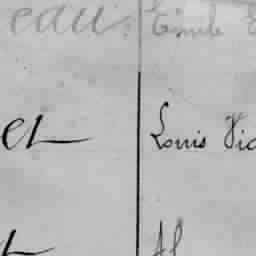 eau Emile
et Louis Vic
Al